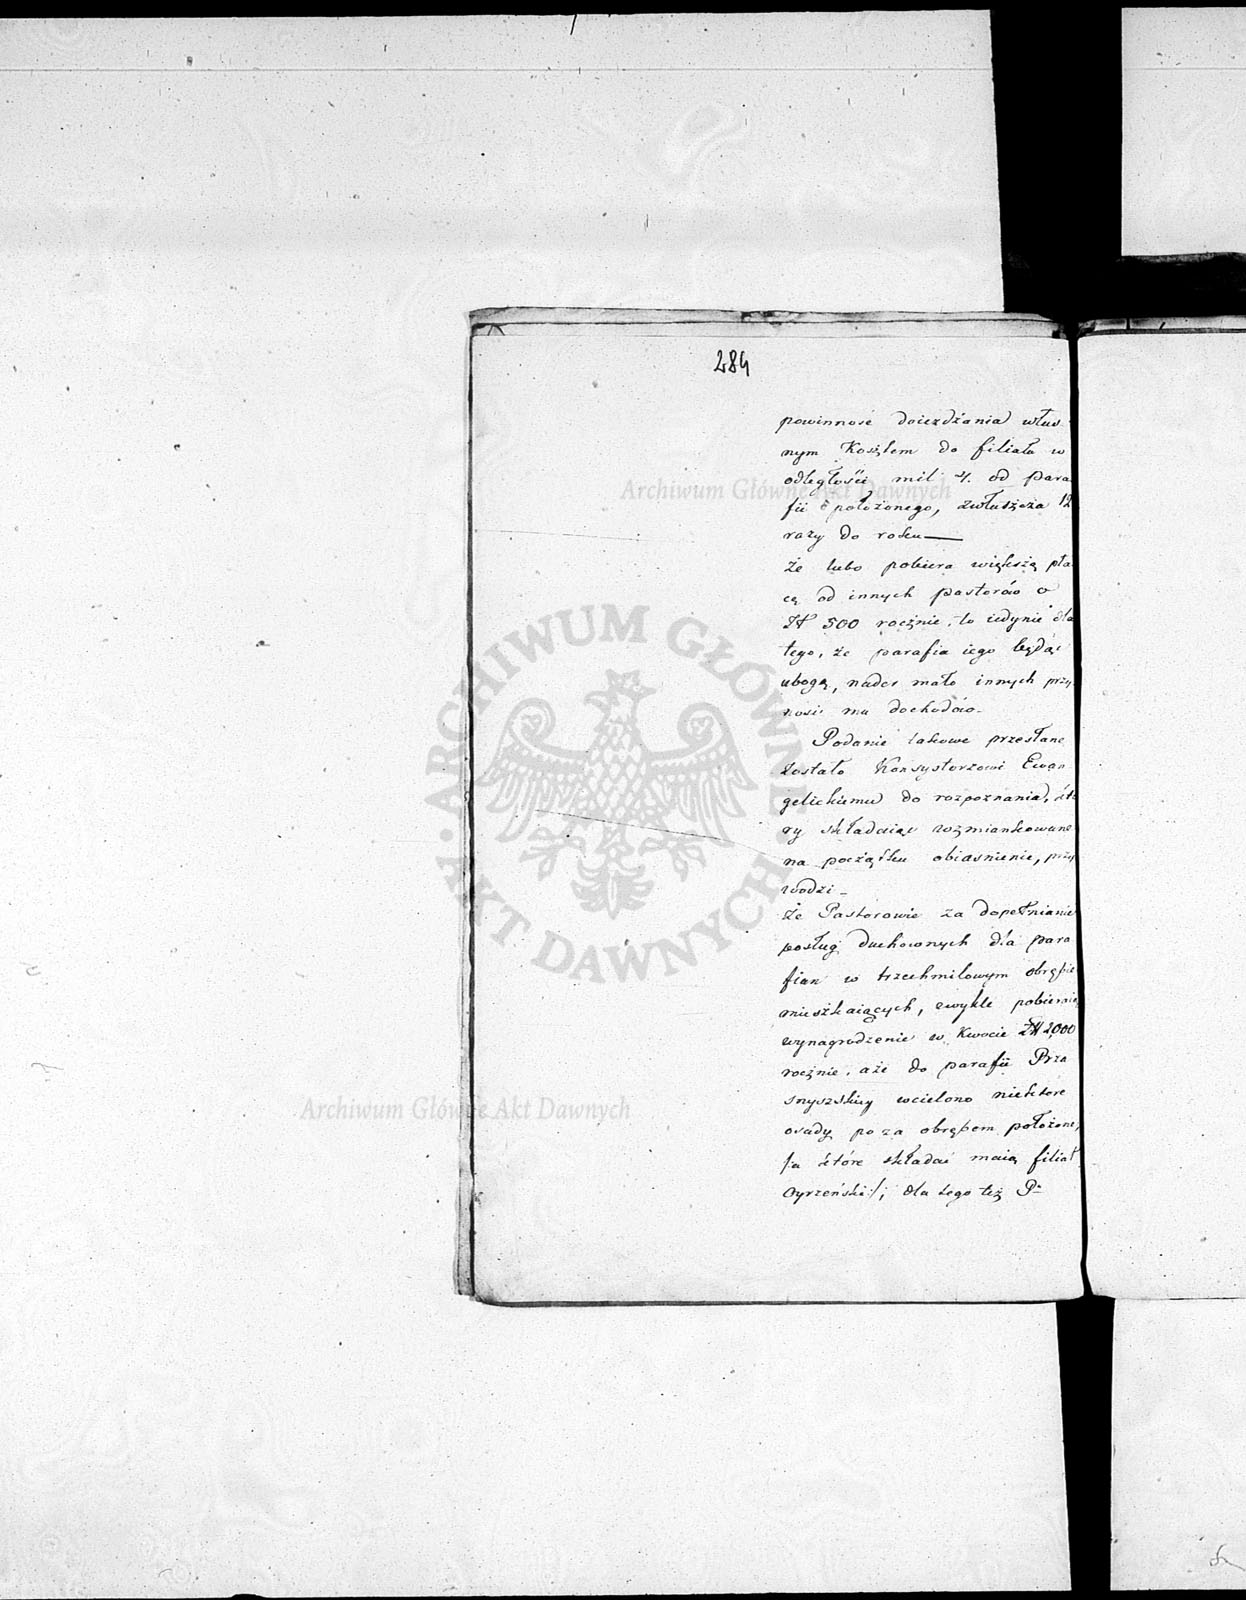 284
powinność doiezdżania włas
nym Kosztem do filiału w
odległości mil 4. od para
fii położonego, zwłaszcza 12
razy do roku —
że lubo pobiera większą pła
cę od innych pastorów o
Zł 500 rocznie, to iedynie dla
tego, że parafia iego będąc
ubogą, nader mało innych przy
nosi mu dochodów.
Podanie takowe przesłane
zostało Konsystorzowi Ewan
gelickiemu do rozpoznania, któ
ry składaiąc wzmiankowane
na początku obiasnienie, przy
wodzi —
że Pastorowie za dopełnianie
posług duchownych dla para
fian w trzechmilowym obrębie
mieszkaiących, zwykle pobieraią
wynagrodzenie w Kwocie Zł 2000
rocznie, a że do parafii Prza
snyszskiey wcielono niektóre
osady po za obrębem położone,
/:a które składać maią filiał
:/; dla tego też P.
Archiwum Główne Akt Dawnych
Archiwum Główne Akt Dawnych
ARCHIWUM GŁÓWNE AKT DAWNYCH